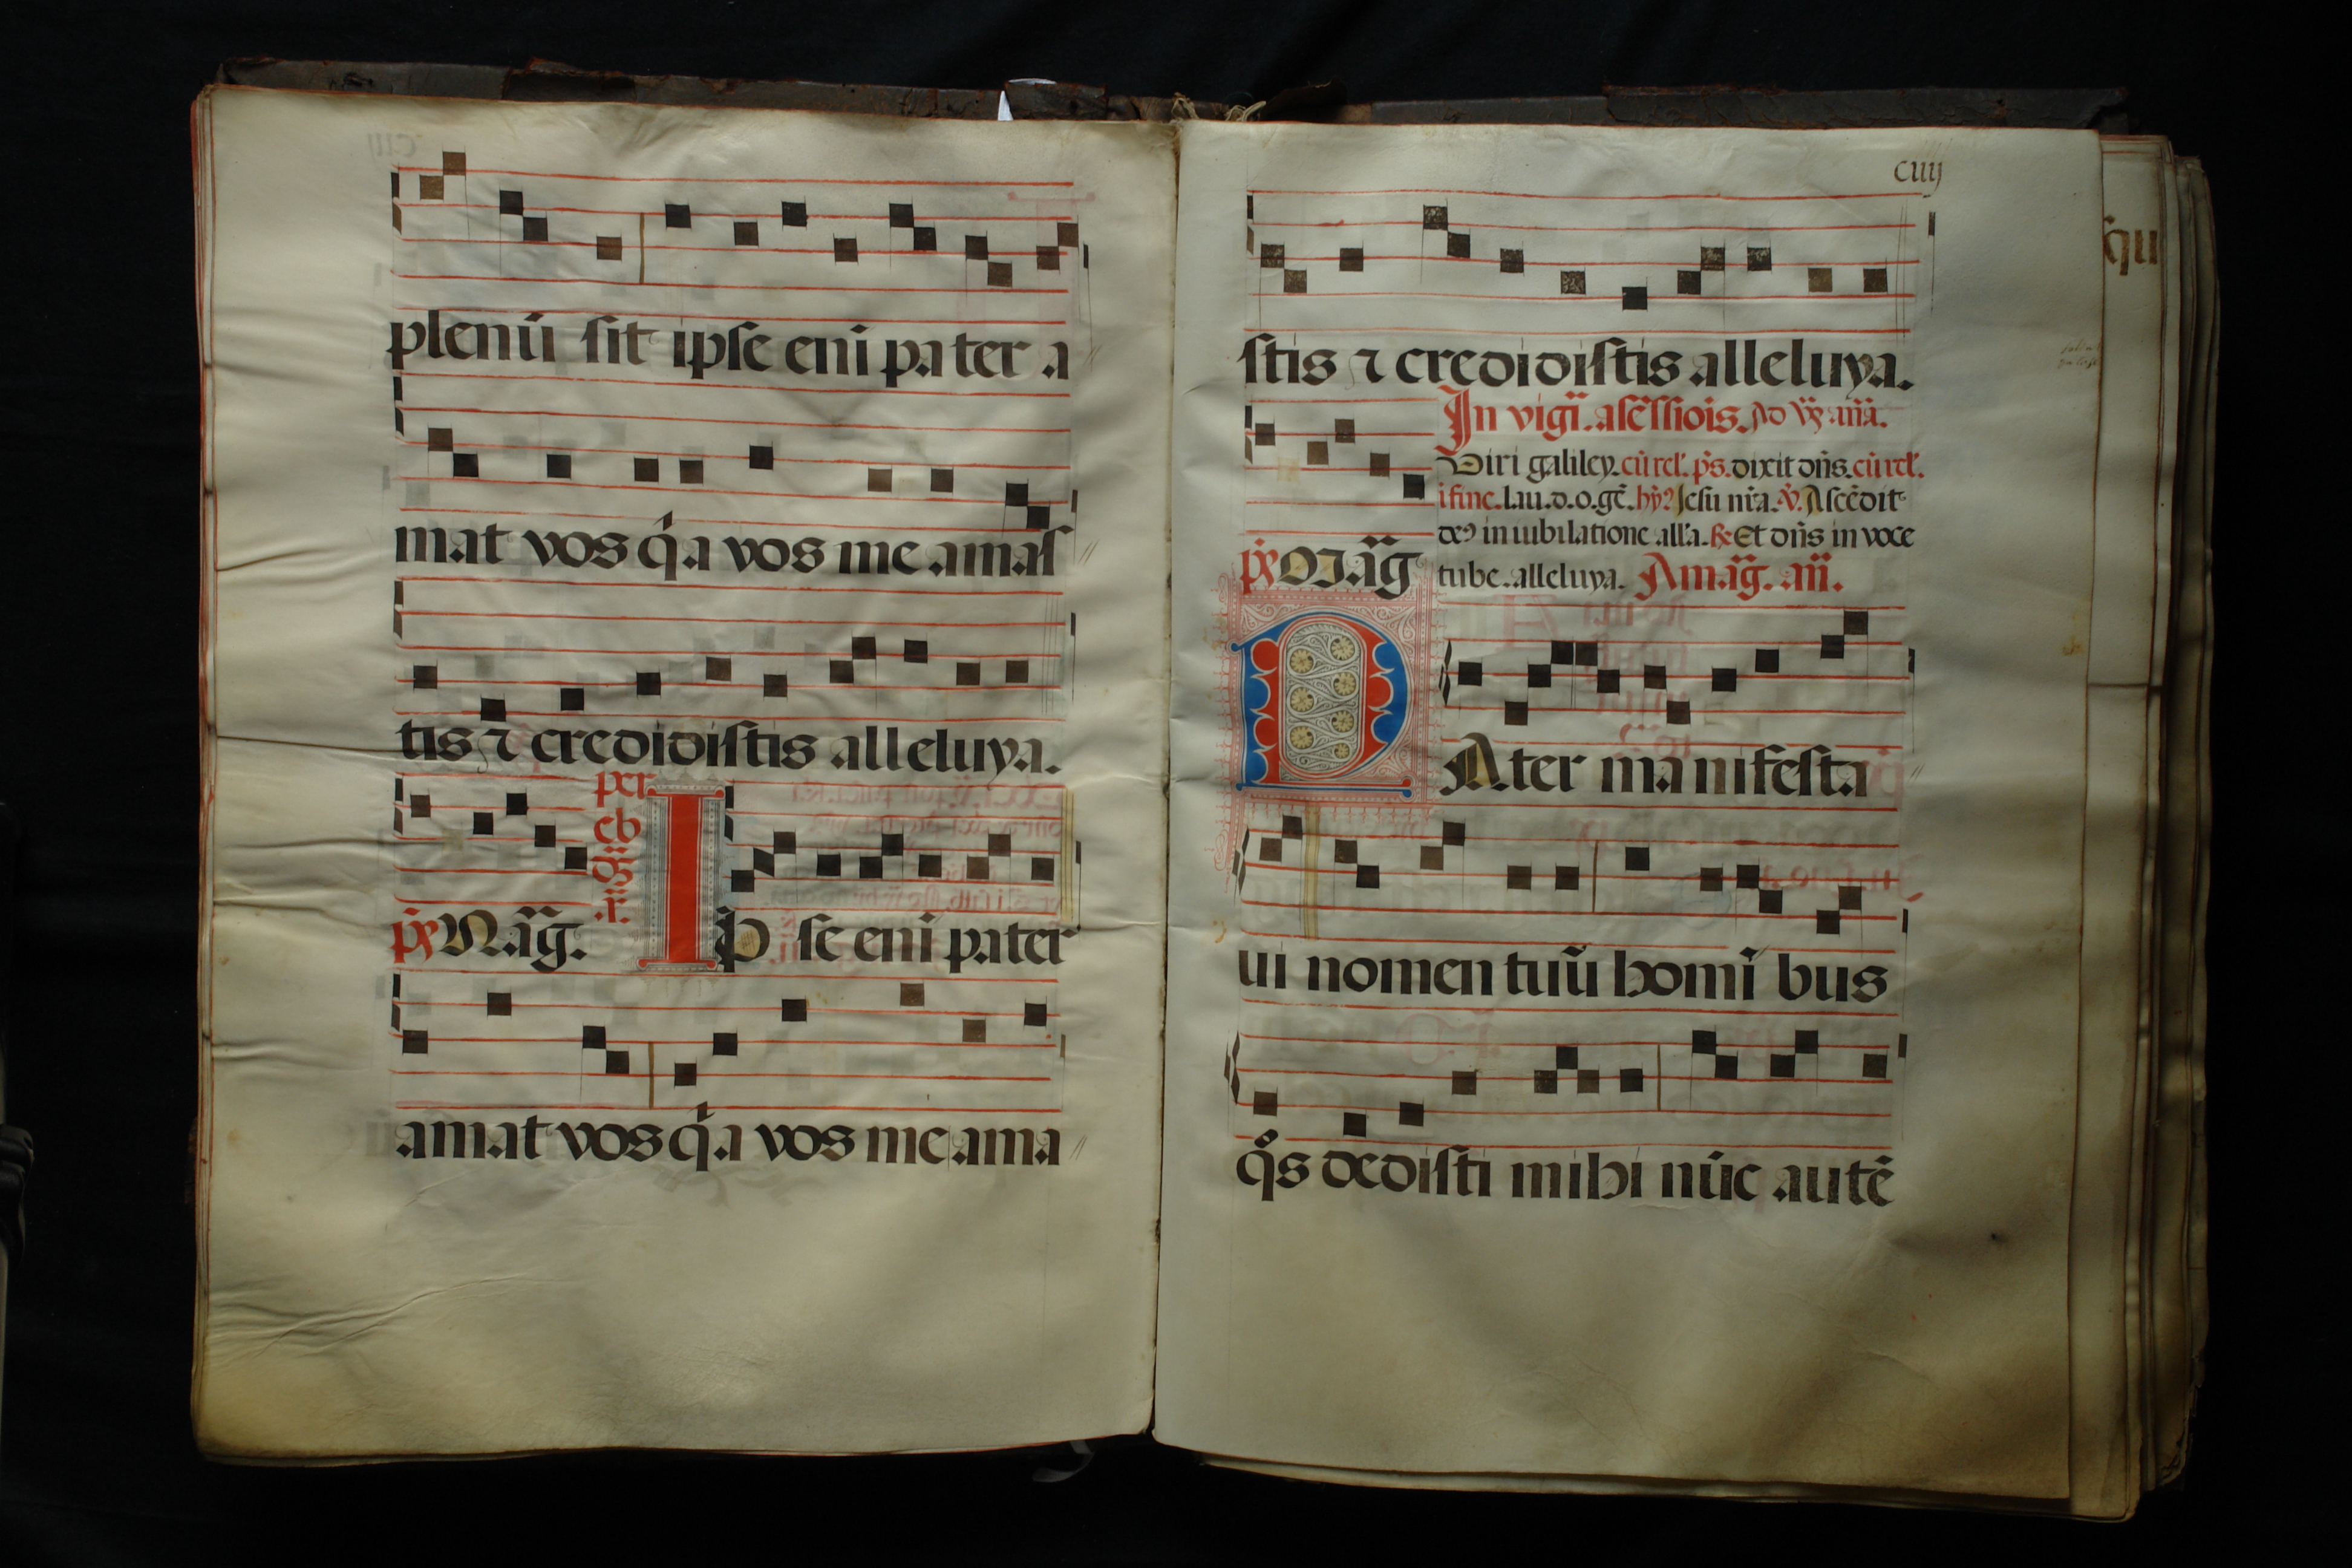 plenū sit ipse eni pater a
mat vos q̇a vos me amas
tis ⁊ credidistis alleluya.
per
eb
Mag̃. Ip se eni pater
amat vos q̇a vos me ama
ciiij
stis ⁊ credidistis alleluya.
In vigi. asc̃ssiois. Ad ana.
Viri galiley. cū rel'. p̄s. dixit dñs. cū rel'.
i fine. lau. d. o. gẽ. hy. Jesu nr̃a. ỹ. Ascẽdit
deꝰ in iubilatione all'a. Et dñs in voce
Mag̃ tube. alleluya. A mag̃. añ.
PAter manifesta
ui nomen tuū homī bus
q̊s dedisti mihi nūc autē
qu